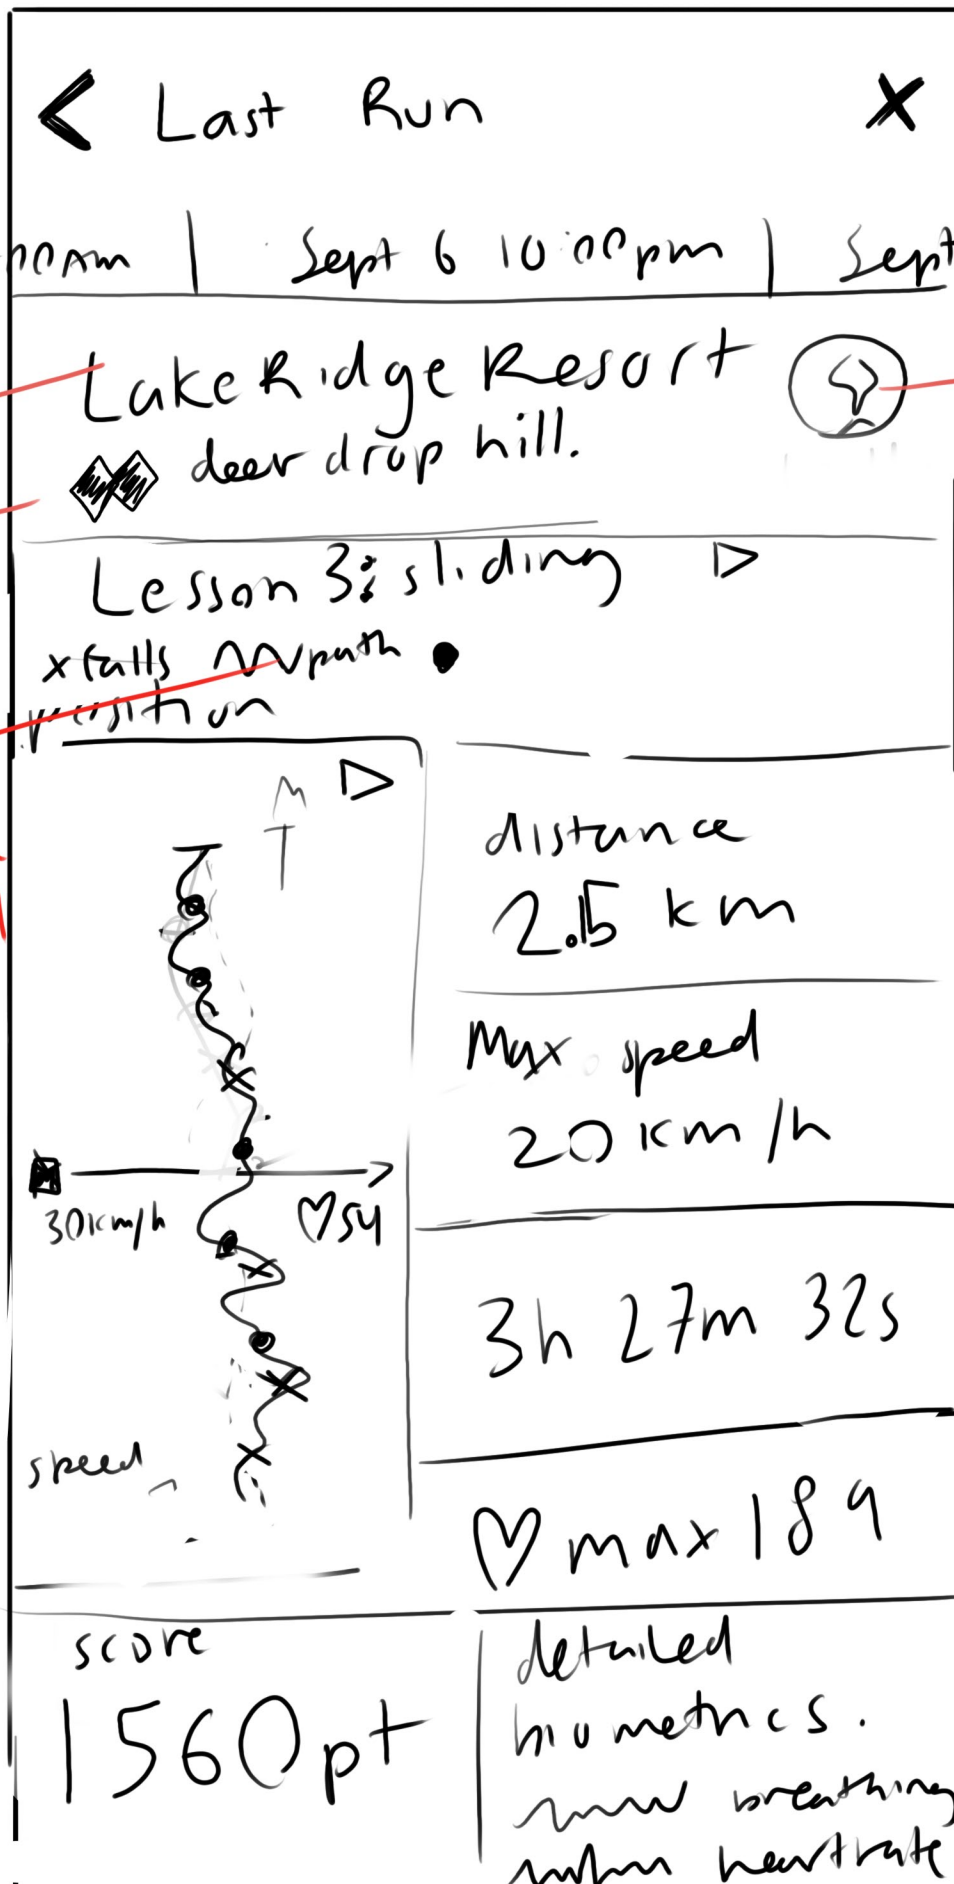 < Last Run X
00AM | Sept 6 10:00pm | Sept
LakeRidge Resort
deer drop hill.
Lesson 3: sliding
x falls path
position
distance
2.5 km
Max speed
20 km/h
30km/h ♡54
3h 27m 32s
speed
♡ max 189
score
1560pt
detailed
biometrics.
breathing
heartrate